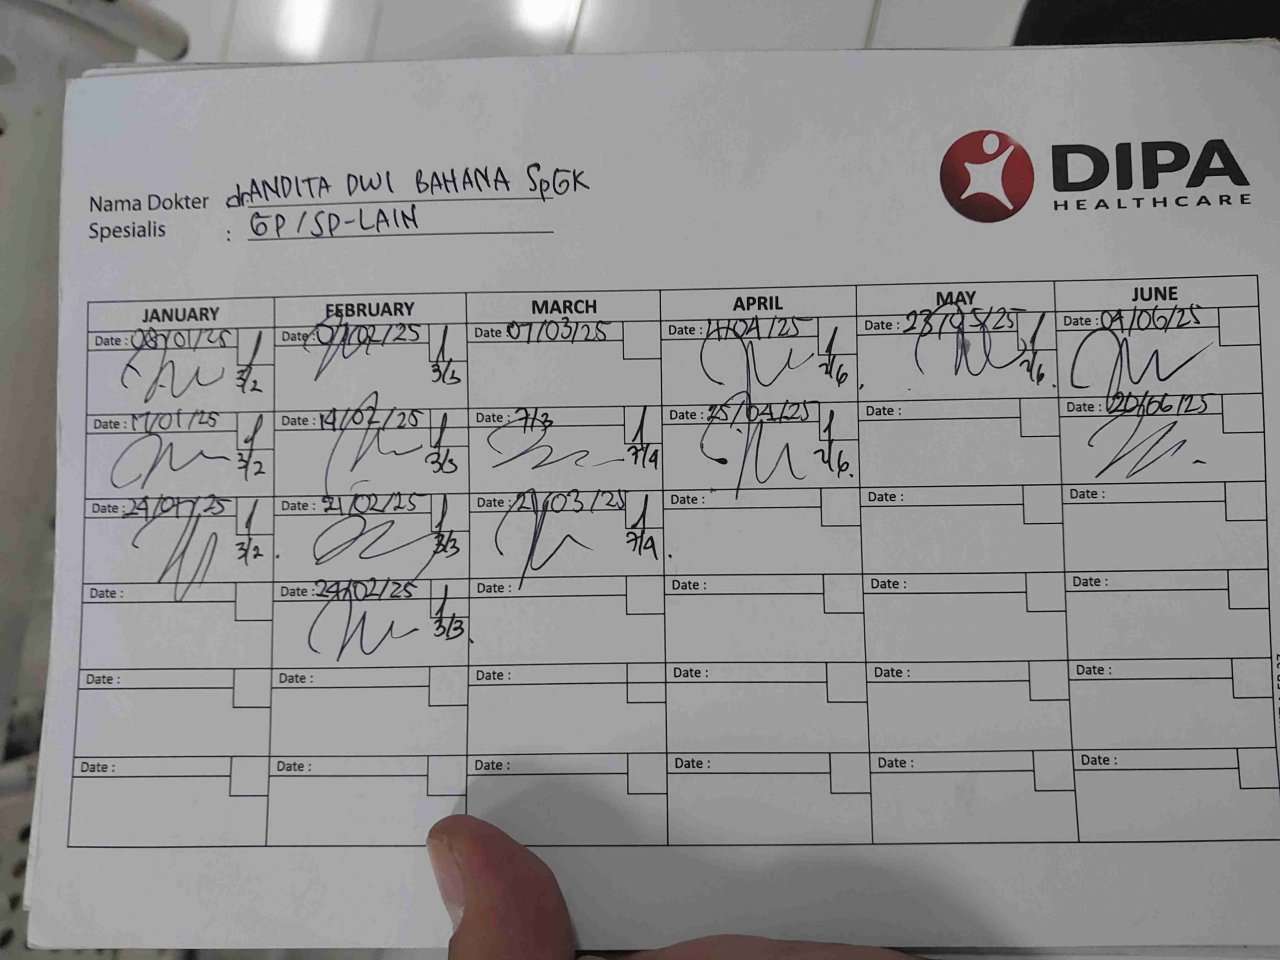 DIPA
HEALTHCARE
Nama Dokter dr. ANDITA DWI BAHANA SpGK
Spesialis : GP / SP-LAIN
JANUARY FEBRUARY MARCH APRIL MAY JUNE
Date : 08/01/25 Date : 07/02/25 Date 07/03/25 Date : 4/04/25 Date : 23/05/25 Date : 04/06/25
3/2 3/3 2/6 2/6.
Date : 17/01/25 Date : 14/02/25 Date : 7/3 Date : 25/04/25 Date : Date : 20/06/25
3/2 3/3 7/4 2/6.
Date : 24/01/25 Date : 21/02/25 Date : 21/03/25 Date : Date : Date :
3/2. 3/3 7/4.
Date : Date : 24/02/25 Date : Date : Date : Date :
3/3.
Date : Date : Date : Date : Date : Date :
Date : Date : Date : Date : Date : Date :